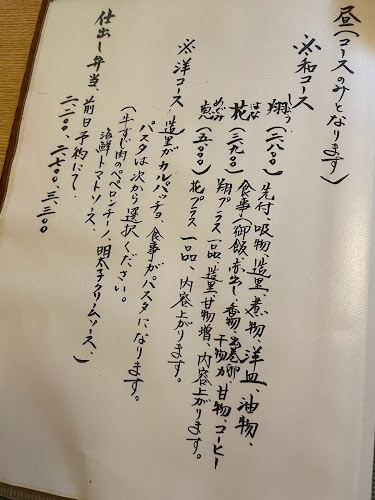 昼(コースのみとなります)
※和コース
しょう
翔(二八〇〇)先付、吸物、造里、煮物、洋皿、油物、
食事(御飯、赤出し、香物、出巻卵、干物カ、甘物、コーヒー
はな
花(三九〇〇)翔プラス一品、造里、甘物増、内容上がります。
めぐみ
恵(五〇〇〇)花プラス一品、内容上がります。
※洋コース
造里がカルパッチョ、食事がパスタになります。
パスタは次から選択ください。
(牛すじ肉のペペロンチーノ、明太子クリームソース、
海鮮トマトソース、)
仕出し弁当、前日予約にて。
二、二〇〇、二、七〇〇、三、三〇〇